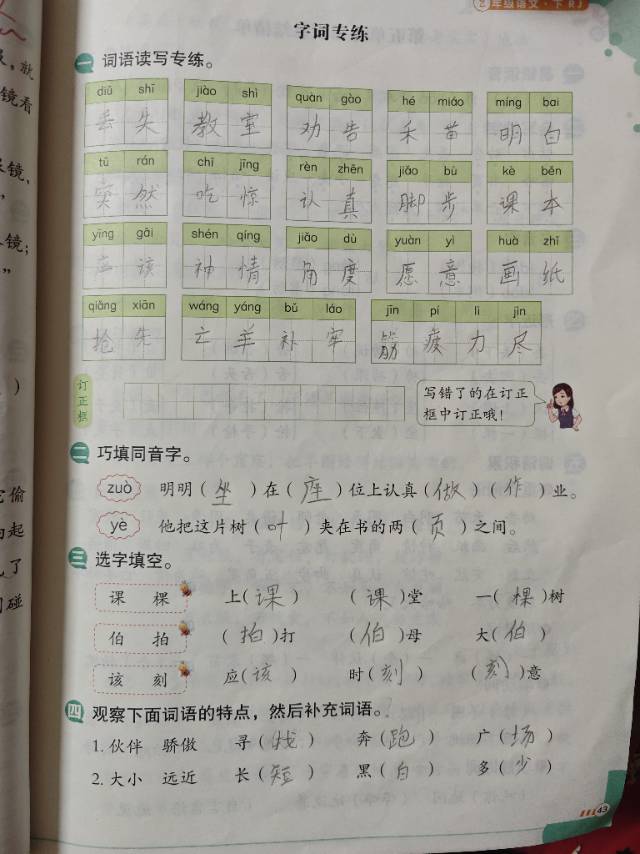 2年级语文·下 RJ
字词专练
一 词语读写专练。
diū shī jiào shì quàn gào hé miáo míng bai
丢失 教室 劝告 禾苗 明白
tū rán chī jīng rèn zhēn jiǎo bù kè běn
突然 吃惊 认真 脚步 课本
yīng gāi shén qíng jiǎo dù yuàn yì huà zhǐ
应该 神情 角度 愿意 画纸
qiǎng xiān wáng yáng bǔ láo jīn pí lì jìn
抢先 亡羊补牢 筋疲力尽
订正框
写错了的在订正
框中订正哦!
二 巧填同音字。
zuò 明明(坐)在(座)位上认真(做)(作)业。
yè 他把这片树(叶)夹在书的两(页)之间。
三 选字填空。
课 棵 上(课) (课)堂 一(棵)树
伯 拍 (拍)打 (伯)母 大(伯)
该 刻 应(该) 时(刻) (刻)意
四 观察下面词语的特点,然后补充词语。
1. 伙伴 骄傲 寻(找) 奔(跑) 广(场)
2. 大小 远近 长(短) 黑(白) 多(少)
43